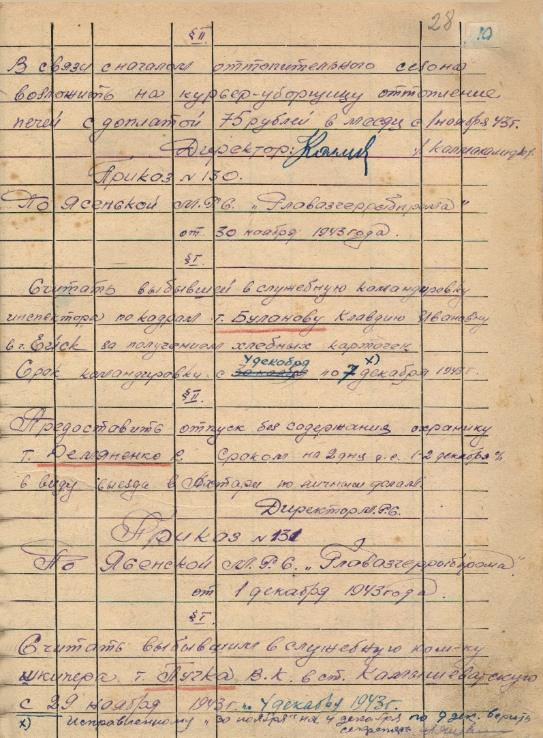 28 10
§ II
В связи с началом оттопительного сезона
возложить на курьер-уборщицу оттопление
печей с доплатой 75 рублей в месяц с 1 ноября 43 г.
Директор:
Приказ № 130.
По Ясенской М.Р.С. „Главазчеррыбпрома"
от 30 ноября 1943 года.
§ I.
Считать выбывшей в служебную командировку
инспектора по кадрам т. Буланову Клавдию Ивановну
в г. Ейск за получением хлебных карточек
4 декабря х)
Срок командировки с 30 ноября по 7 декабря 1943 г.
§ II.
Предоставить отпуск без содержания охранику
т. Демяненко сроком на 2 дня 1-2 декабря
в виду выезда в Ахтари по личным делам.
Директор М.Р.С.
Приказ № 131
По Ясенской М.Р.С. „Главазчеррыбпрома".
от 1 декабря 1943 года.
§ I
Считать выбывшим в служебную ком-ку
шкипера т. Пучка В.К. в ст. Камышеватскую
с 29 ноября 1943 г. по 4 декабря 1943 г.
х) Исправленному „30 ноября" на 4 декабря по 7 дек. верить
секретарь